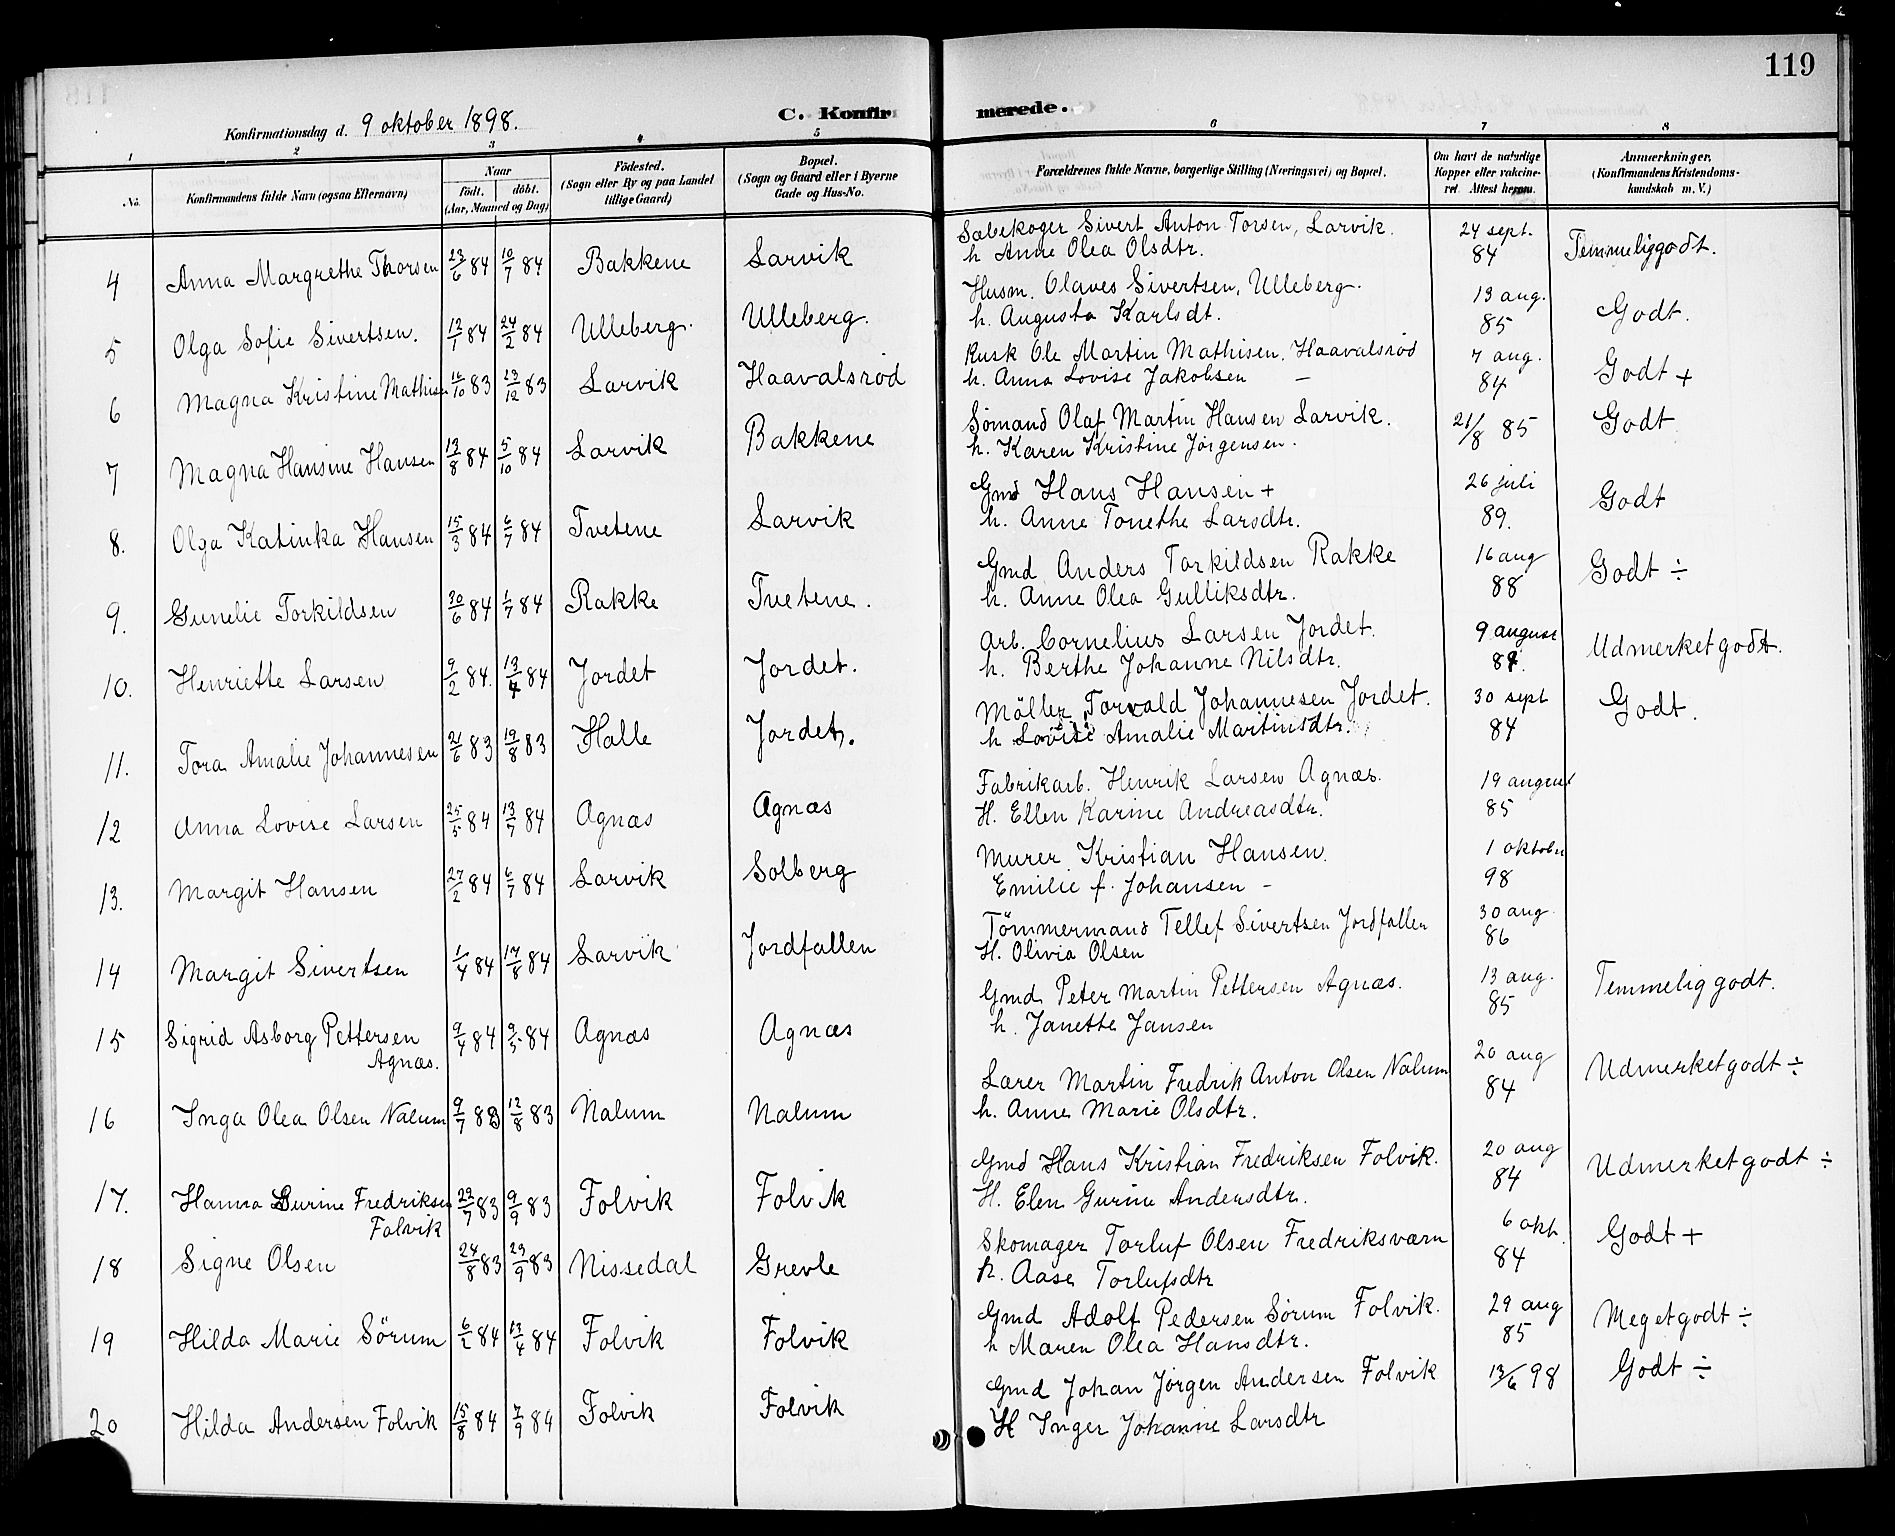 119
Konfirmationsdag d. 9 oktober 1898.
C. Konfirmerede.
1 2 3 4 5 6 7 8
No.
Konfirmandens fulde Navn (ogsaa Efternavn)
Naar
födt. döbt.
(Aar, Maaned og Dag)
Födested.
(Sogn eller By og paa Landet
tillige Gaard)
Bopæl.
(Sogn og Gaard eller i Byerne
Gade og Hus-No.
Forældrenes fulde Navne, borgerlige Stilling (Næringsvei) og Bopæl.
Om havt de naturlige
Kopper eller vakcine-
ret. Attest herom.
Anmærkninger.
(Konfirmandens Kristendoms-
kundskab m. V.)
4 Anna Margrethe Thorsen 23/6 84 10/7 84 Bakkene Larvik Sæbekoger Sivert Anton Torsen, Larvik. 24 sept. Temmeliggodt.
h Anne Olea Olsdtr. 84
5 Olga Sofie Sivertsen. 12/1 84 24/2 84 Ulleberg. Ulleberg. Husm. Olaves Sivertsen, Ulleberg. 13 aug. Godt.
h. Augusta Karlsdt. 85
6 Magna Kristine Mathisen 16/10 83 23/12 83 Larvik Haavalsröd Kusk Ole Martin Mathisen, Haavalsröd 7 aug. Godt +
h. Anna Lovise Jakobsen — 84
7 Magna Hansine Hansen 13/8 84 5/10 84 Larvik Bakkene Sømand Olaf Martin Hansen Larvik. 21/8 85 Godt
h. Karen Kristine Jørgensen.
8. Olga Katinka Hansen 15/3 84 6/7 84 Tvetene Larvik Gmd Hans Hansen + 26 juli Godt
h. Anne Tonethe Larsdtr. 89.
9. Gunelie Torkildsen 30/6 84 1/7 84 Rakke Tvetene. Gmd Anders Torkildsen Rakke 16 aug Godt ÷
h. Anne Olea Gulliksdtr. 88
10. Henriette Larsen 9/2 84. 13/4 84 Jordet Jordet. Arb. Cornelius Larsen Jordet. 9 august Udmerketgodt.
h. Berthe Johanne Nilsdtr.
11. Tora Amalie Johannesen 21/6 83 19/8 83 Halle Jordet. Möller Torvald Johannesen Jordet. 30 sept Godt.
h Lovise Amalie Martinsdtr. 84
12 Anna Lovise Larsen 25/5 84 13/7 84 Agnæs Agnæs Fabrikarb. Henrik Larsen Agnæs. 19 august
H. Ellen Karine Andreasdtr. 85
13. Margit Hansen 27/2 84 6/7 84 Larvik Solberg Murer Kristian Hansen. 1 oktober
Emilie f. Johansen — 98
14 Margit Sivertsen 1/4 84 17/8 84 Larvik Jordfallen Tömmermand Tellef Sivertsen Jordfallen 30 aug.
H. Olivia Olsen 86
15 Sigrid Asborg Pettersen 9/4 84 9/5 84 Agnæs Agnæs Gmd. Peter Martin Pettersen Agnæs. 13 aug. Temmelig godt.
Agnæs. h. Janette Jansen 85
16 Inga Olea Olsen Nalum 9/7 83 12/8 83 Nalum Nalum Lærer Martin Fredrik Anton Olsen Nalum 20 aug Udmerketgodt ÷
h. Anne Marie Olsdtr. 84
17. Hanna Gurine Fredriksen 29/7 83 9/9 83 Folvik Folvik Gmd Hans Kristian Fredriksen Folvik. 20 aug Udmerketgodt ÷
Folvik H. Elen Gurine Andersdtr. 84
18 Signe Olsen 24/8 83 23/9 83 Nissedal Grevle Skomager Torluf Olsen Fredriksværn 6 okt. Godt +
h. Aase Torlufsdtr 84
19 Hilda Marie Sörum 6/2 84 13/4 84 Folvik Folvik Gmd Adolf Pedersen Sørum Folvik. 29 aug Megetgodt ÷
h Maren Olea Hansdtr. 85
20 Hilda Andersen Folvik 15/8 84 7/9 84 Folvik Folvik Gmd Johan Jørgen Andersen Folvik 13/6 98 Godt ÷
H Inger Johanne Larsdtr